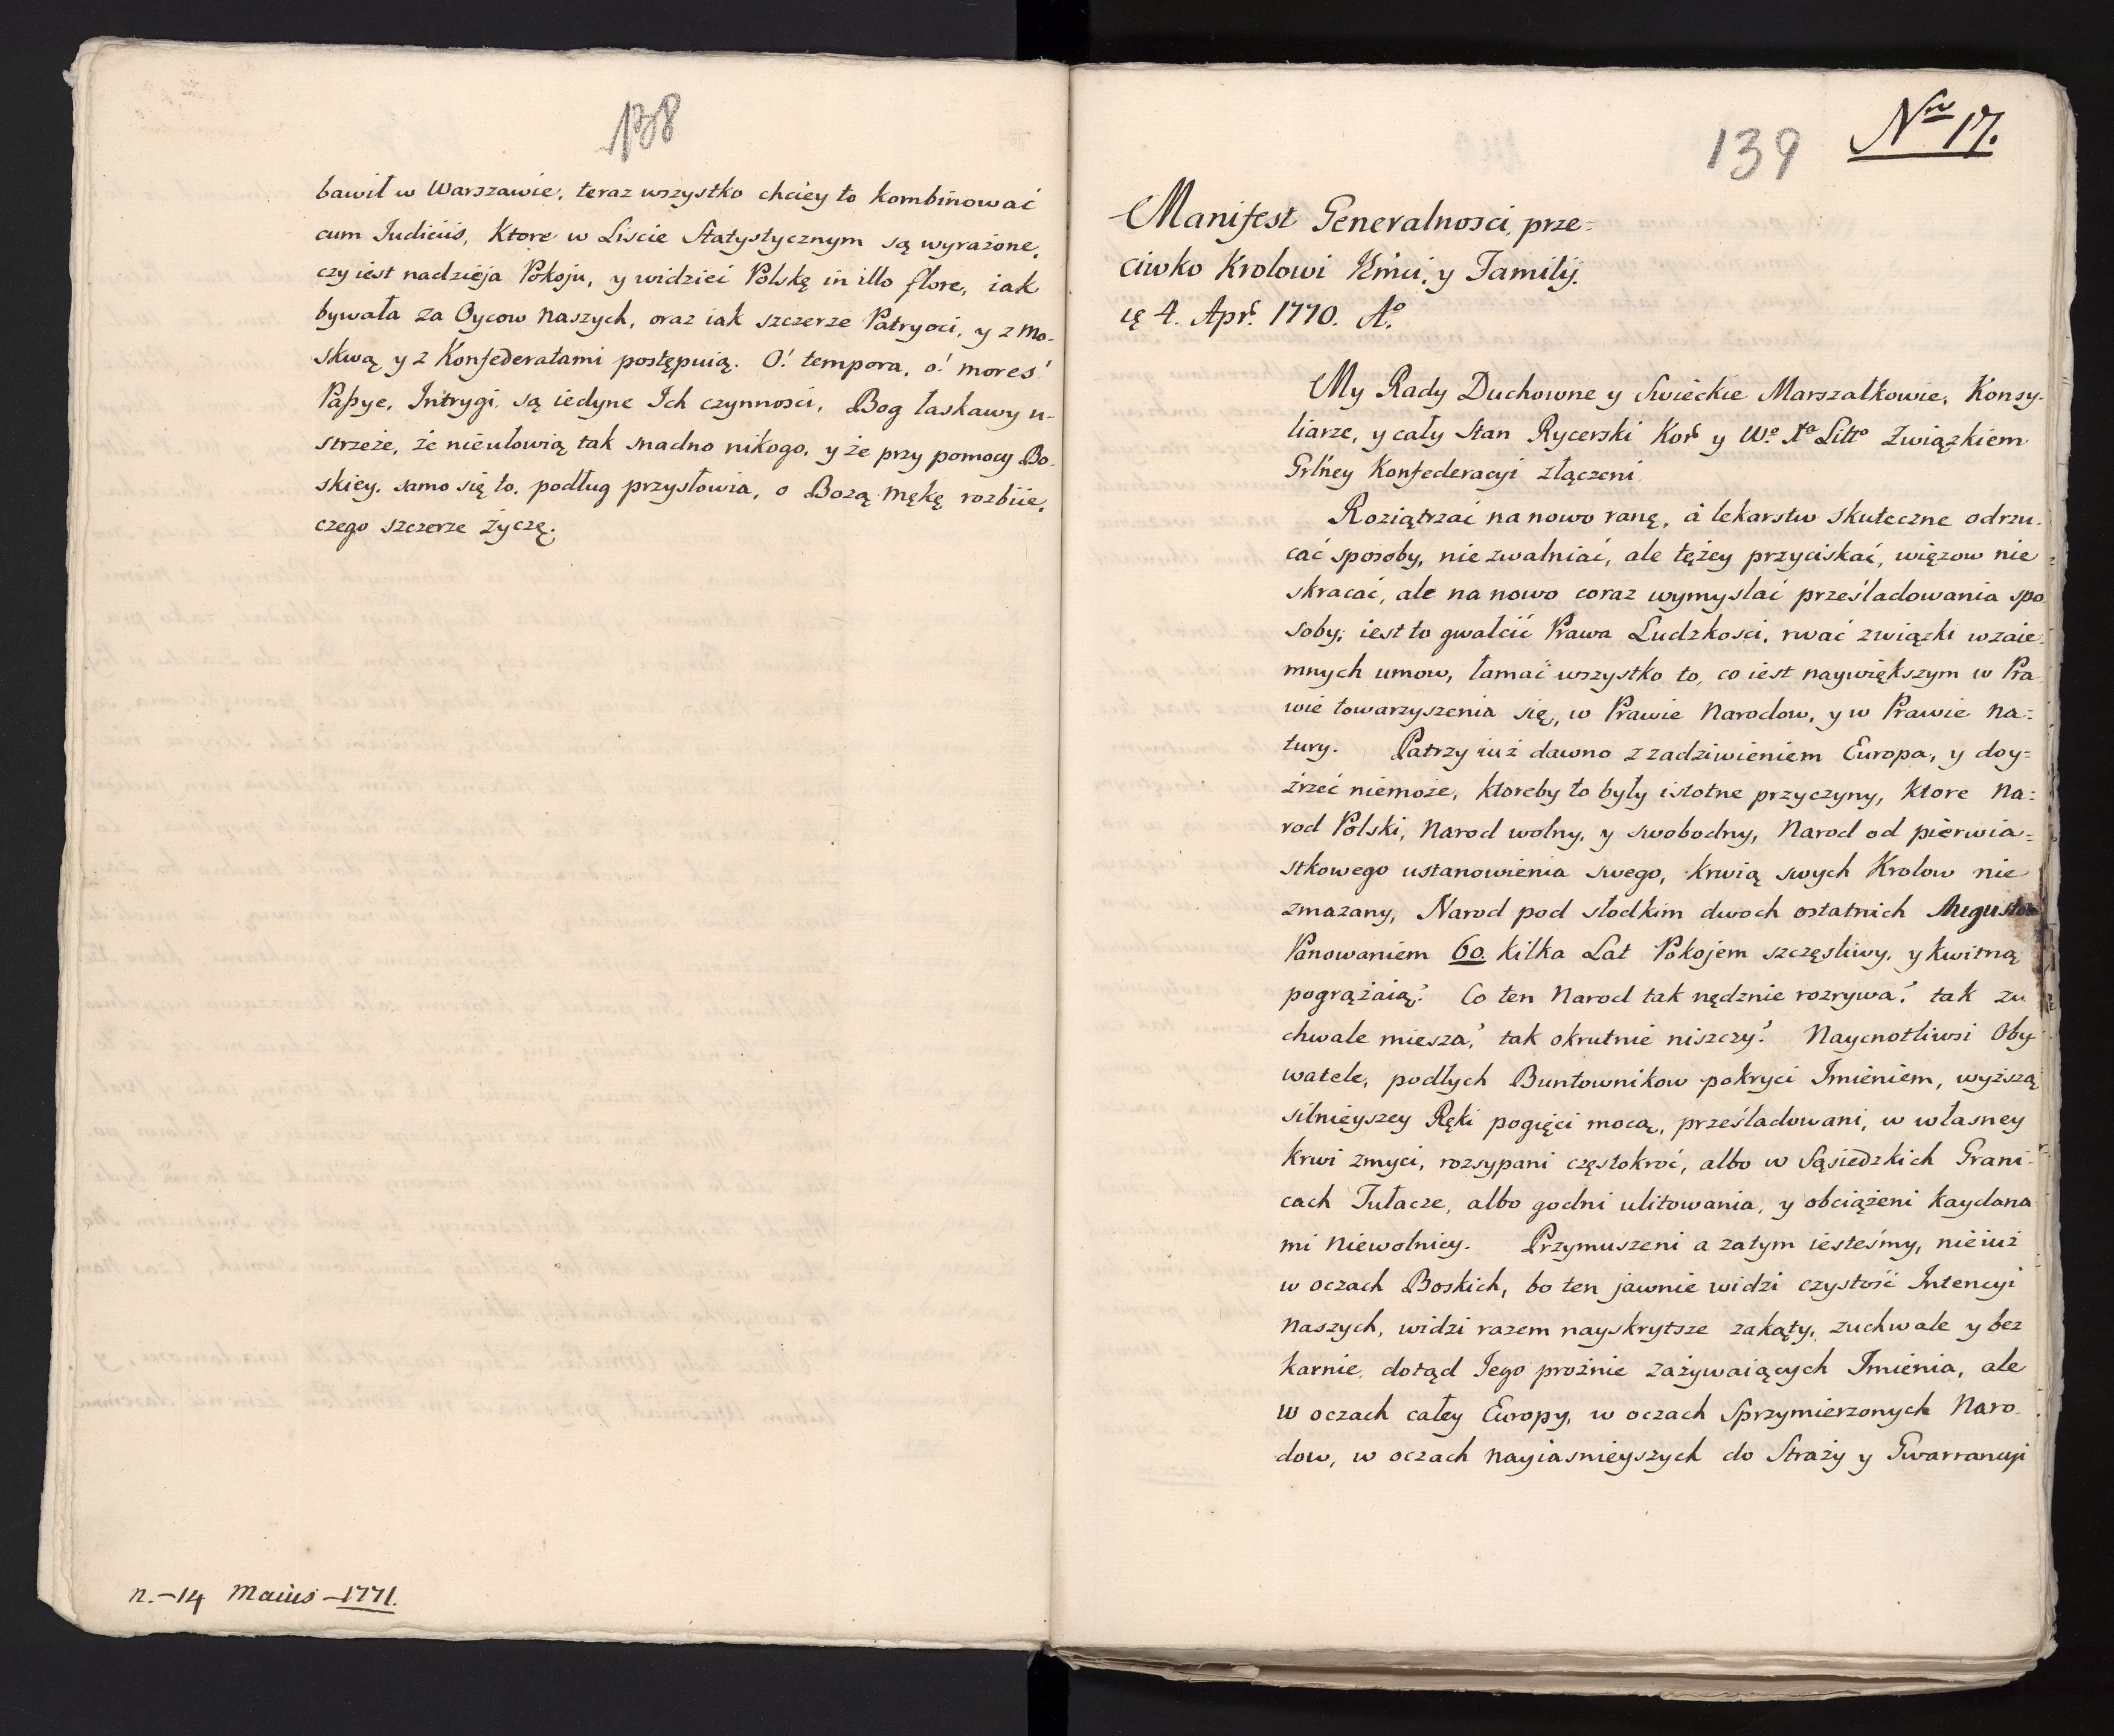 138
bawił w Warszawie, teraz wszystko chciey to kombinować
cum Iudiciis, Ktore w Liście Statystycznym są wyrażone,
czy iest nadzieja Pokoju, y widzieć Polskę in illo flore, iak
bywała za Oycow Naszych, oraz iak szczerze Patryoci, y z Mo-
skwą y z Konfederatami postępuią. O! tempora, o! mores!
Paßye, Intrygi, są iedyne Ich czynnosci, Bog łaskawy u-
strzeże, że nieułowią tak snadno nikogo, y że przy pomocy Bo-
skiey, samo się to, podług przysłowia, o Bozą Mękę rozbiie,
czego szczerze życzę.
n.-14 Maius -1771.
139
Nro 17.
Manifest Generalnosci, prze=
ciwko Krolowi Jmci, y Familij.
ię 4. Apr. 1770. Ao.
My Rady Duchowne y Swieckie Marszałkowie, Konsy-
liarze, y cały Stan Rycerski Kor y Wo Xa Litto Związkiem
Grlney Konfederacyi złączeni.
Roziątrzać na nowo ranę, á lekarstw skuteczne odrzu-
cać sposoby, nie zwalniać, ale tężey przyciskać, więzow nie
skracać, ale na nowo coraz wymyslać prześladowania spo
soby, iest to gwałcić Prawa Ludzkosci, rwać związki wzaie-
mnych umow, łamać wszystko to, co iest naywiększym w Pra
wie towarzyszenia się, w Prawie Narodow, y w Prawie Na=
tury. Patrzy iuż dawno z zadziwieniem Europa, y doy=
źrzeć niemoże, ktoreby to były istotne przyczyny, Ktore Na=
rod Polski, Narod wolny, y swobodny, Narod od pierwia=
stkowego ustanowienia swego, krwią swych Krolow nie
zmazany, Narod pod słodkim dwoch ostatnich Augustow
Panowaniem 60. Kilka Lat Pokojem szczęsliwy, y kwitną
pogrążaią? Co ten Narod tak nędznie rozrywa? tak zu
chwale miesza? tak okrutnie niszczy? Naycnotliwsi Oby
watele, podłych Buntownikow pokryci Imieniem, wyższą
silnieyszey Ręki pogięci mocą, prześladowani, w własney
Krwi zmyci, rozsypani częstokroć, albo w Sąsiedzkich Grani-
cach Tułacze, albo godni ulitowania, y obciążeni Kaydana
mi Niewolnicy. Przymuszeni a zatym iesteśmy, nieiuż
w oczach Boskich, bo ten jawnie widzi czystość Intencyi
Naszych, widzi razem nayskrytsze zakąty, zuchwale y bez
karnie dotąd Iego prożnie zażywaiących Imienia, ale
w oczach całey Europy, w oczach Sprzymierzonych Naro-
dow, w oczach Nayiasnieyszych do Straży y Gwarrancyi